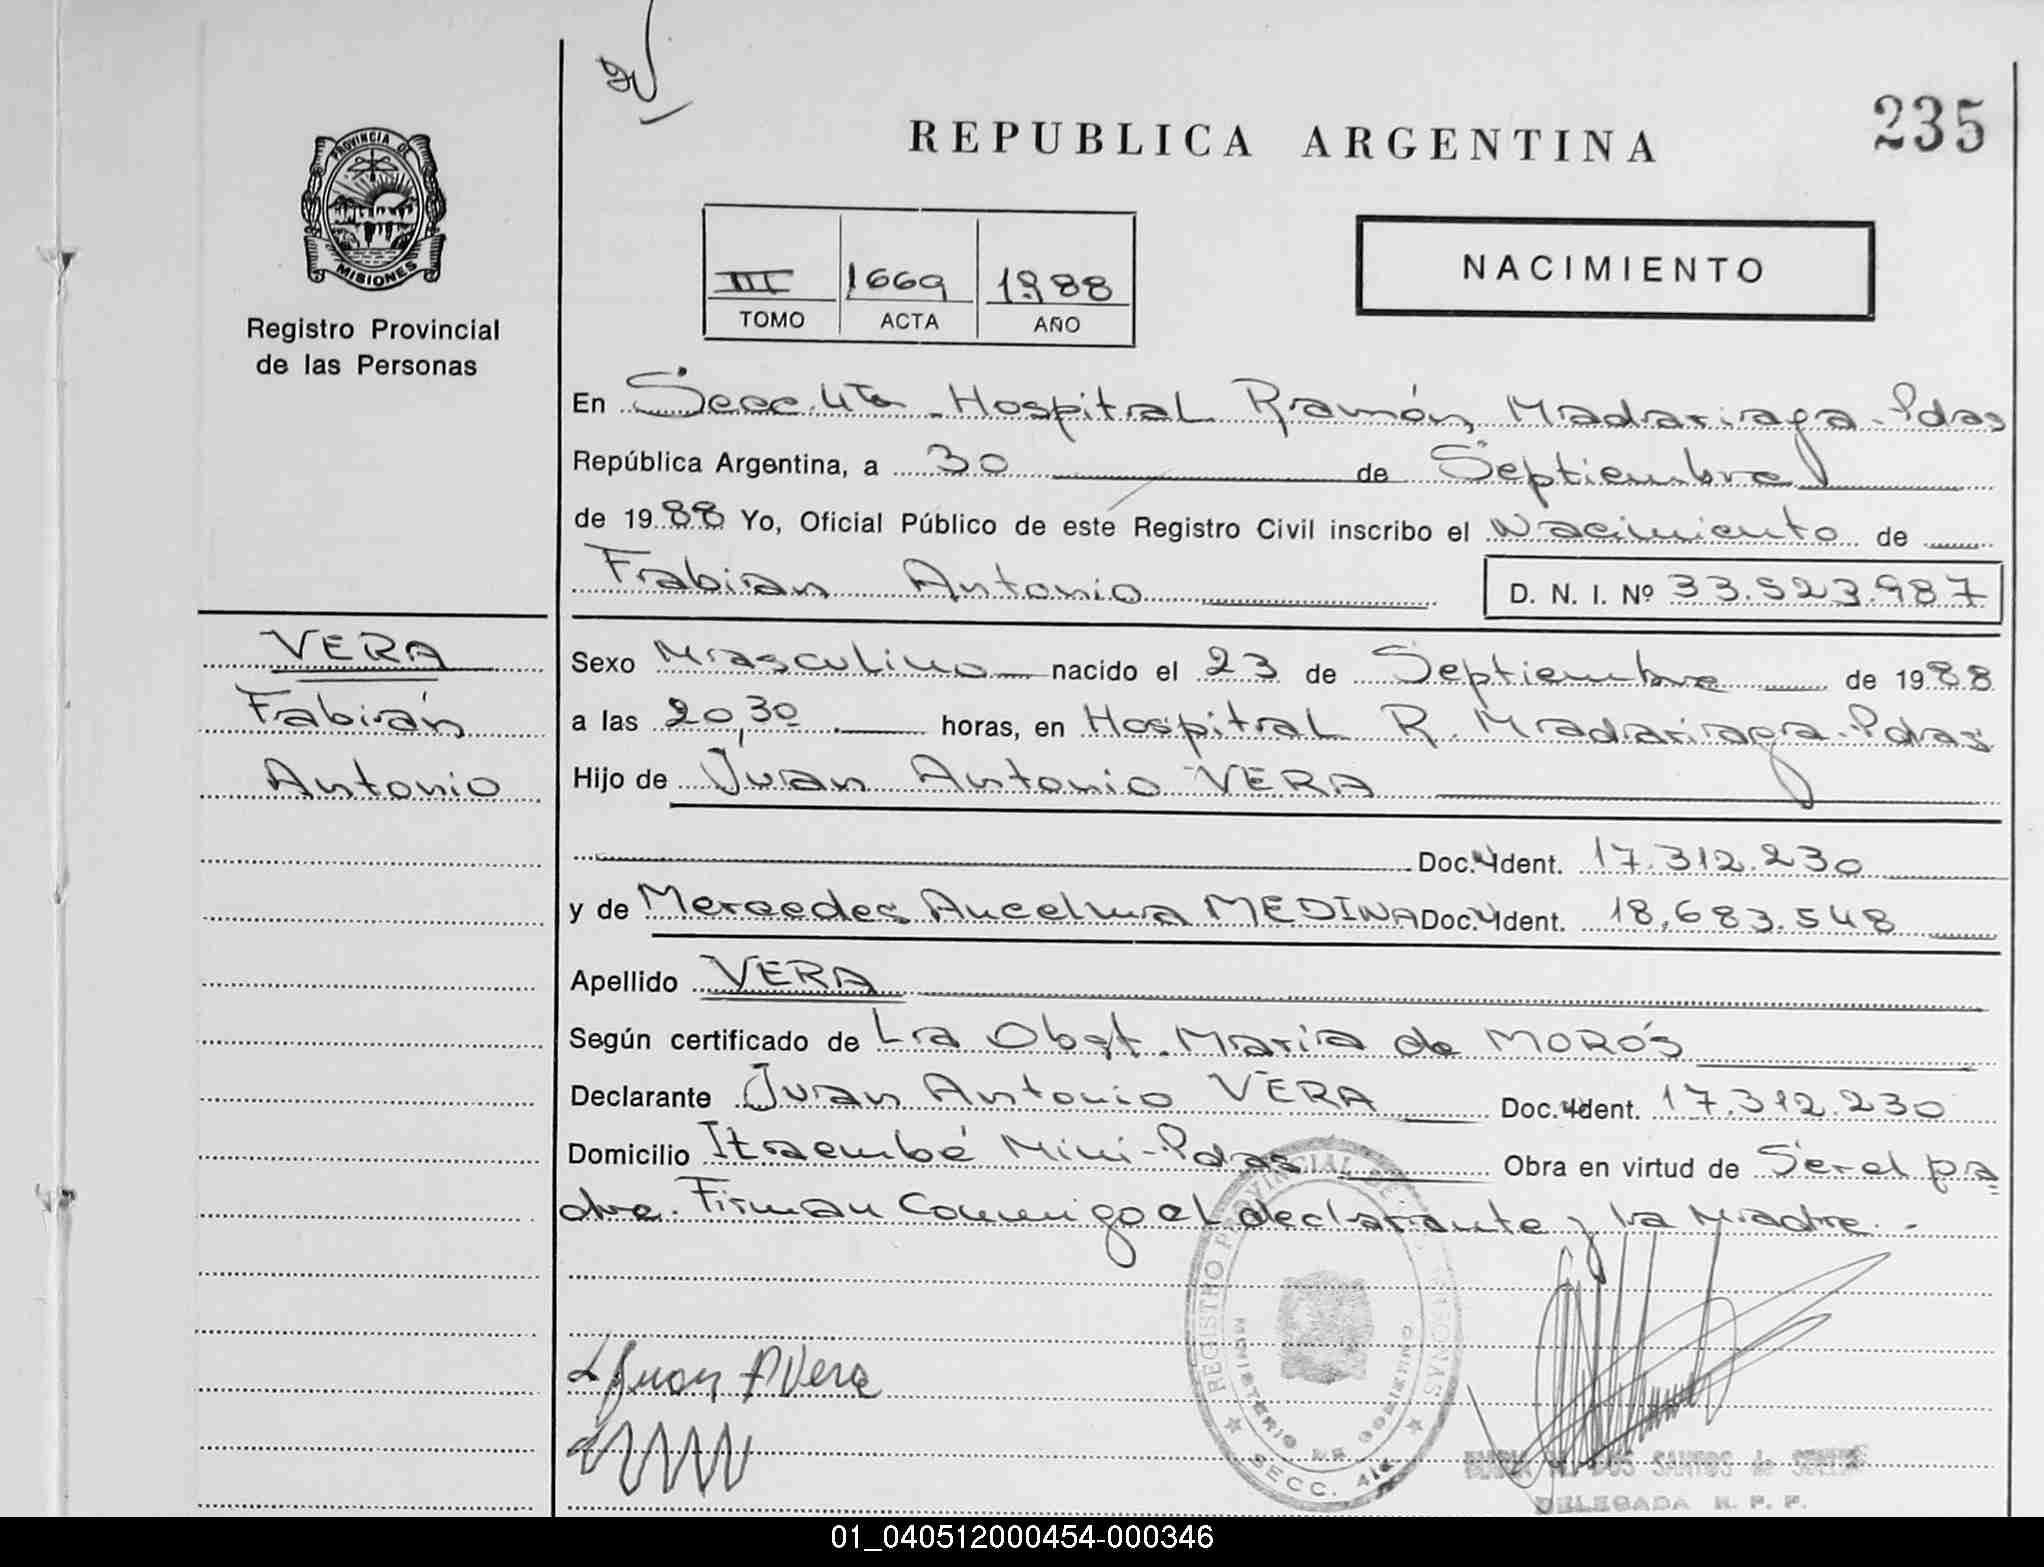 235
REPUBLICA ARGENTINA
PROVINCIA DE
MISIONES
Registro Provincial
de las Personas
III 1669 1988
TOMO ACTA AÑO
NACIMIENTO
En Secc. 4ta - Hospital Ramón Madariaga - Pdas
República Argentina, a 30 de Septiembre
de 1988 Yo, Oficial Público de este Registro Civil inscribo el Nacimiento de
Fabian Antonio D. N. I. Nº 33.523.987
VERA
Fabián
Antonio
Sexo Masculino nacido el 23 de Septiembre de 1988
a las 20,30 horas, en Hospital R. Madariaga - Pdas
Hijo de Juan Antonio VERA
Doc. Ident. 17.312.230
y de Mercedes Ancelma MEDINA Doc. Ident. 18.683.548
Apellido VERA
Según certificado de La Obst. Maria de MORÓS
Declarante Juan Antonio VERA Doc. Ident. 17.312.230
Domicilio Itaembé Mini - Pdas Obra en virtud de Ser el pa
dre. Firman Conmigo el declarante y la Madre. -
REGISTRO PROVINCIAL DE LAS PERSONAS
MINISTERIO DE GOBIERNO
SECC. 4ta
Juan A Vera
DOS SANTOS de
DELEGADA R. P. P.
01_040512000454-000346